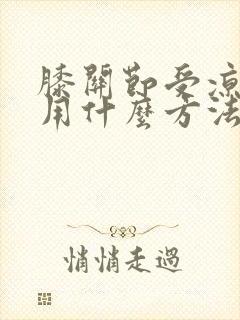 膝關節受涼
用什麼方法
悄悄走過